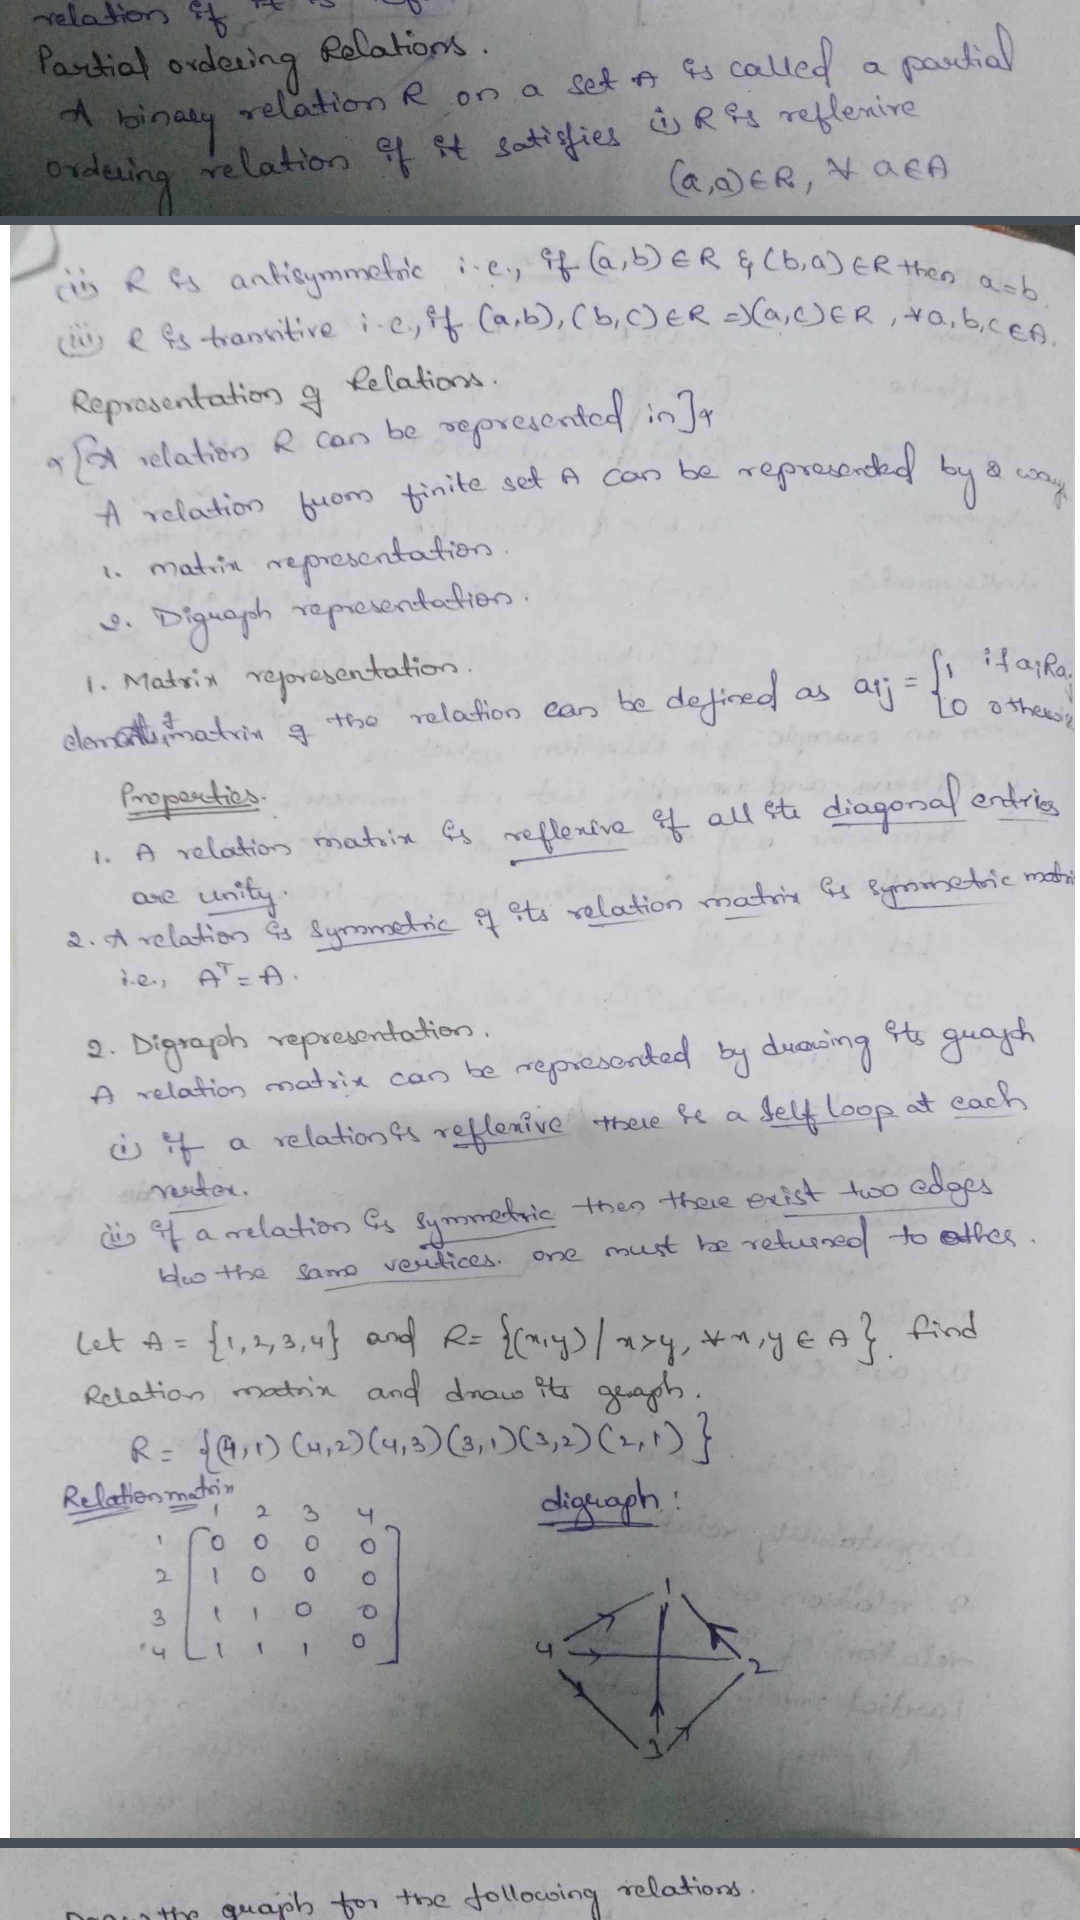 relation if it is
Partial ordering Relations.
A binary relation R on a set A is called a partial
ordering relation if it satisfies (i) R is reflexive
(a,a)∈R, ∀ a∈A
(ii) R is antisymmetric i.e., if (a,b)∈R & (b,a)∈R then a=b.
(iii) R is transitive i.e., if (a,b), (b,c)∈R ⇒(a,c)∈R, ∀a,b,c∈A.
Representation of Relations.
[A relation R can be represented in]
A relation from finite set A can be represented by 2 way
1. matrix representation.
2. Digraph representation.
1. Matrix representation.
matrix of the relation can be defined as aij = {1 if aiRaj
0 otherwise
Properties.
1. A relation matrix is reflexive if all its diagonal entries
are unity.
2. A relation is symmetric if its relation matrix is symmetric matri
i.e., Aᵀ = A.
2. Digraph representation.
A relation matrix can be represented by drawing its graph
(i) if a relation is reflexive there is a self loop at each
vertex.
(ii) if a relation is symmetric then there exist two edges
b/w the same vertices. one must be returned to other.
Let A = {1,2,3,4} and R= {(x,y) / x>y, ∀ x,y ∈ A}. find
Relation matrix and draw its graph.
R = {(4,1) (4,2) (4,3) (3,1) (3,2) (2,1)}
Relation matrix
1 2 3 4
1 0 0 0 0
2 1 0 0 0
3 1 1 0 0
4 1 1 1 0
digraph:
1
4
2
3
the graph for the following relations.